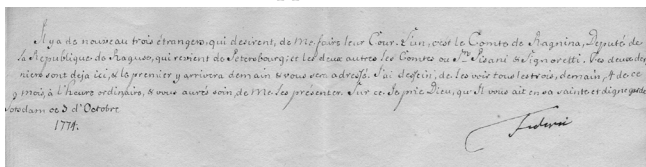 Il y a de nouveau trois étrangers, qui desirent, de me faire leur Cour. L'un, c'est le Comte de Ragnina, Deputé de
la Republique de Raguse, qui revient de Petersbourg; et les deux autres les Comtes ou Srs Pisani & Signoretti. Ces deux der-
niers sont deja ici, & le premier y arrivera demain & vous sera adressé. J'ai dessein, de les voir tous les trois, demain, 4 de ce
mois, à l'heure ordinaire, & vous aurés soin, de me les presenter. Sur ce Je prie Dieu, qu'Il vous ait en sa sainte et digne garde
Potsdam ce 3 d'Octobre
1774.
Federic